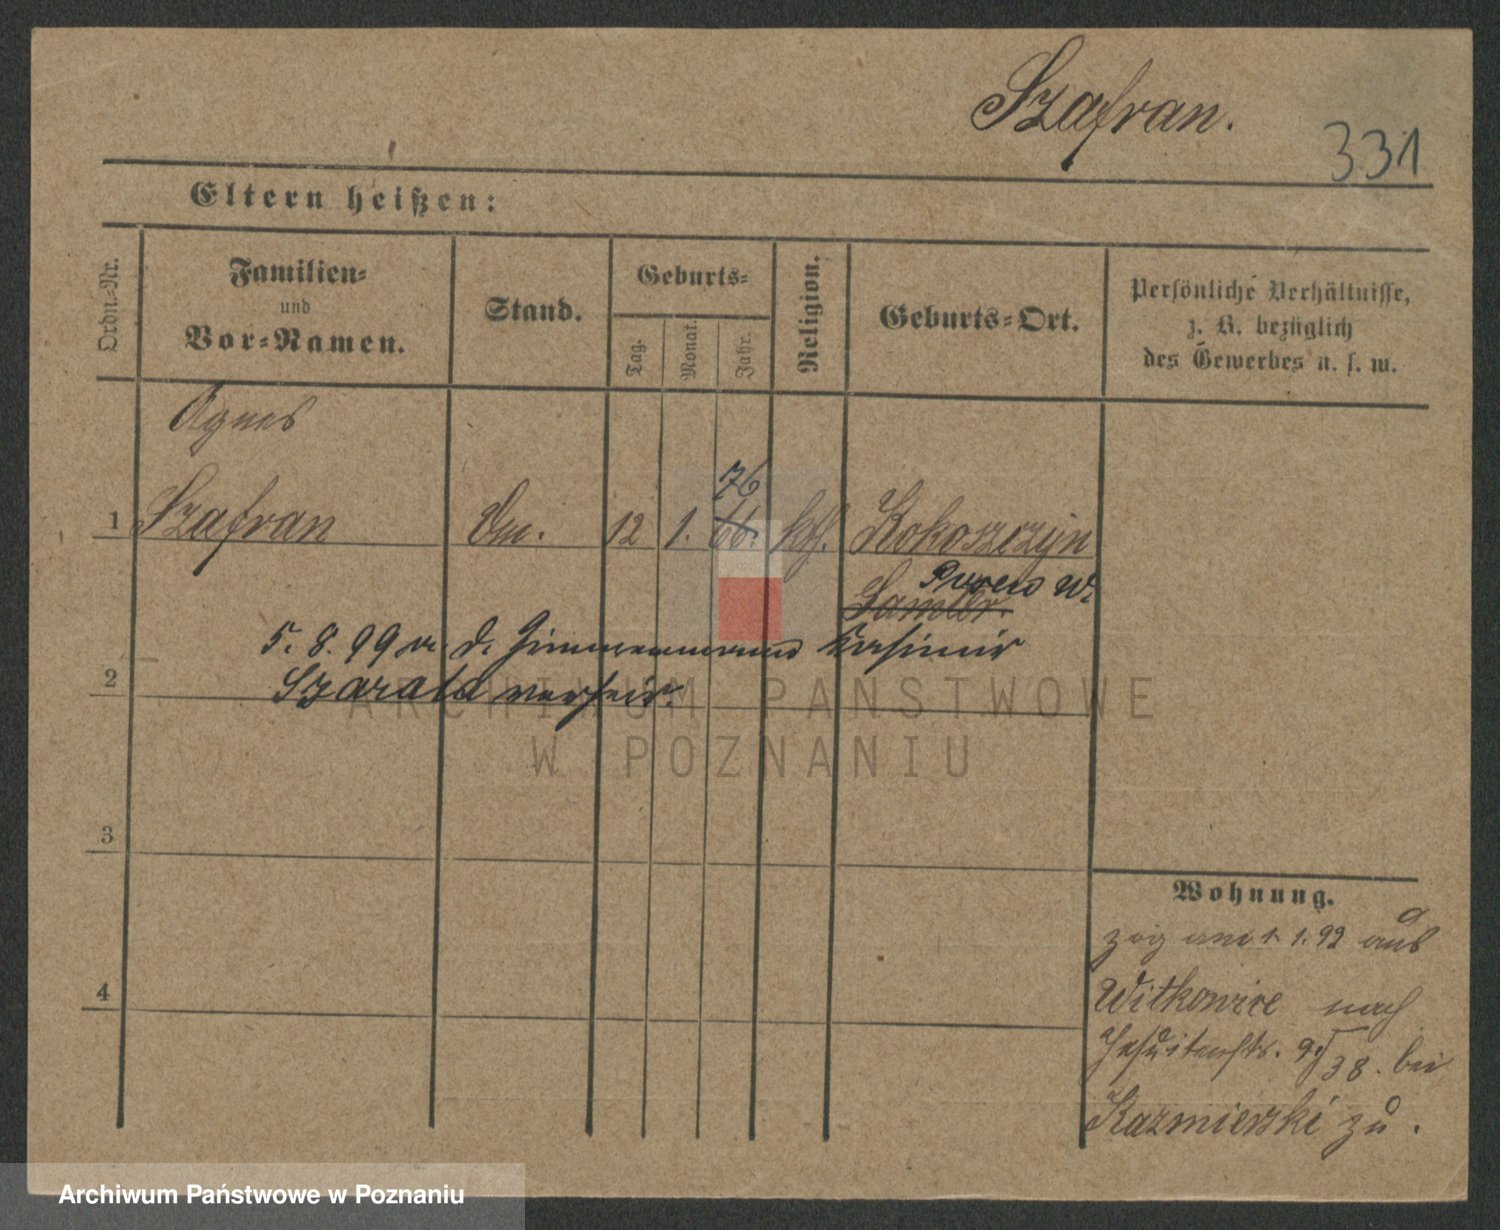 Szafran.
331
Eltern heißen:
Ordn.-Nr.
Familien-
und
Vor-Namen.
Stand.
Geburts-
Tag.
Monat.
Jahr.
Religion.
Geburts-Ort.
Persönliche Verhältnisse,
z. B. bezüglich
des Gewerbes u. s. w.
Agnes
76
1 Szafran 12 1. 66. kth. Kokoszczyn
Posen W.
Samter.
5. 8. 99 m. d. Zimmermann Kasimir
2 Szarata verheir.
3
4
Wohnung.
zog am 1. 1. 92 aus
Witkowice nach
Jesuitenstr. 9./
38. bei
Kazmierski zu.
ARCHIWUM PAŃSTWOWE
W POZNANIU
Archiwum Państwowe w Poznaniu